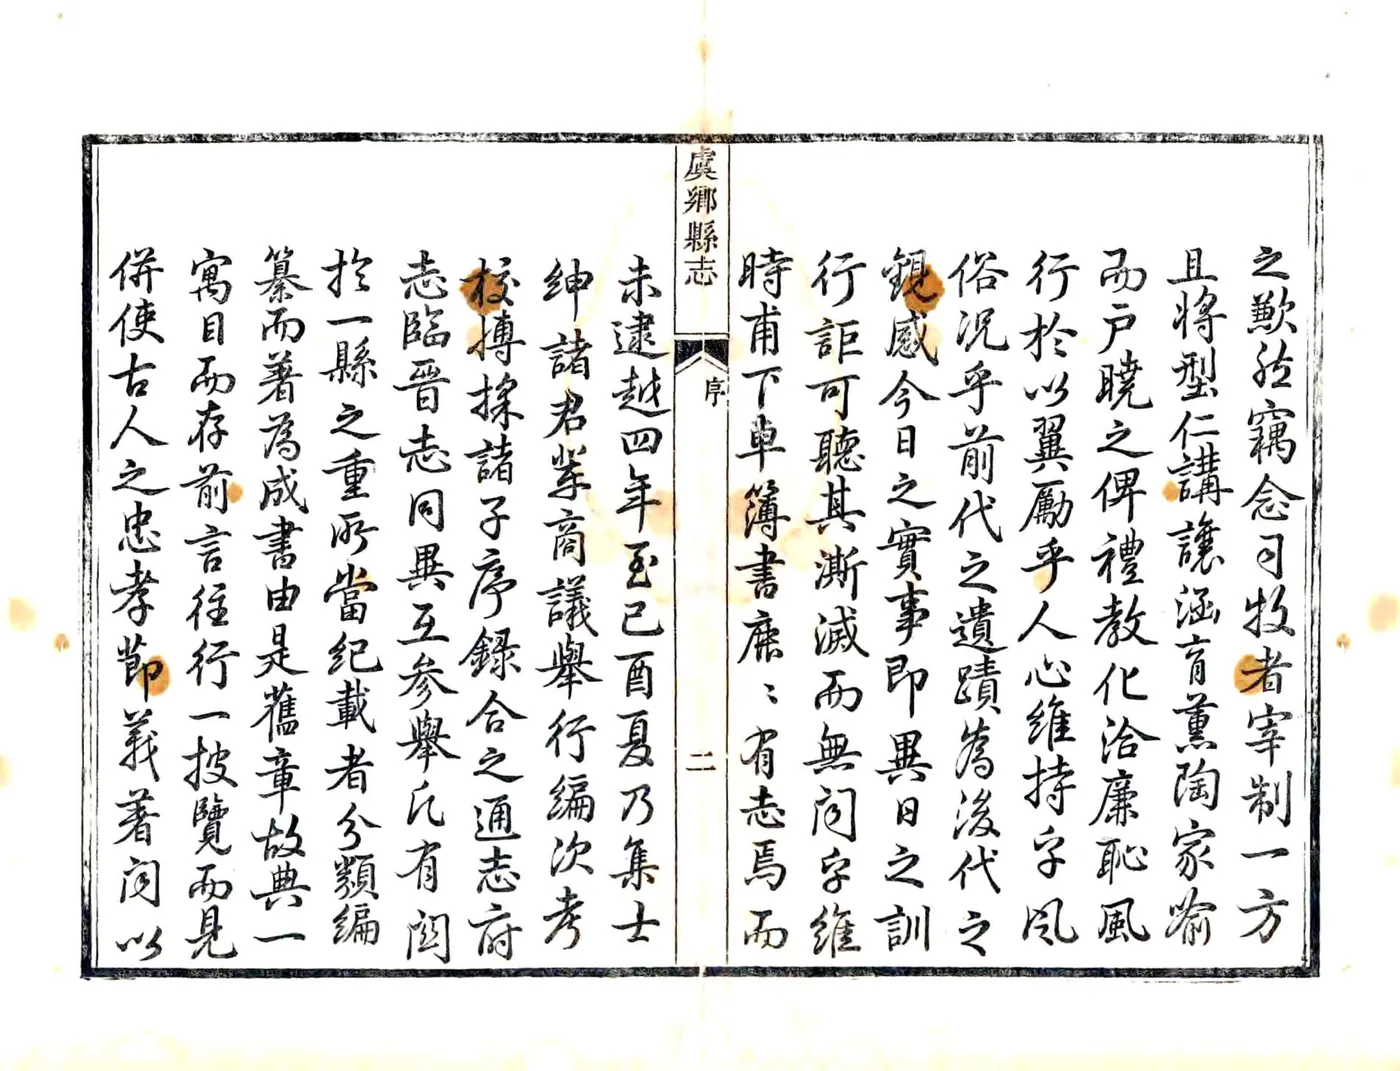 之歎然竊念司牧者宰制一方
且將型仁講讓涵育薰陶家喻
而戶曉之俾禮教化洽廉恥風
行於以翼勵乎人心維持乎風
俗況乎前代之遺蹟為後代之
鏡感今日之實事即異日之訓
行詎可聽其澌滅而無問乎維
時甫下車簿書鹿〻有志焉而
虞鄉縣志
序
二
未逮越四年至己酉夏乃集士
紳諸君輩商議舉行編次考
校搏採諸子序錄合之通志府
志臨晉志同異互參舉凡有關
於一縣之重所當紀載者分類編
纂而著為成書由是舊章故典一
寓目而存前言往行一披覽而見
併使古人之忠孝節義著聞以